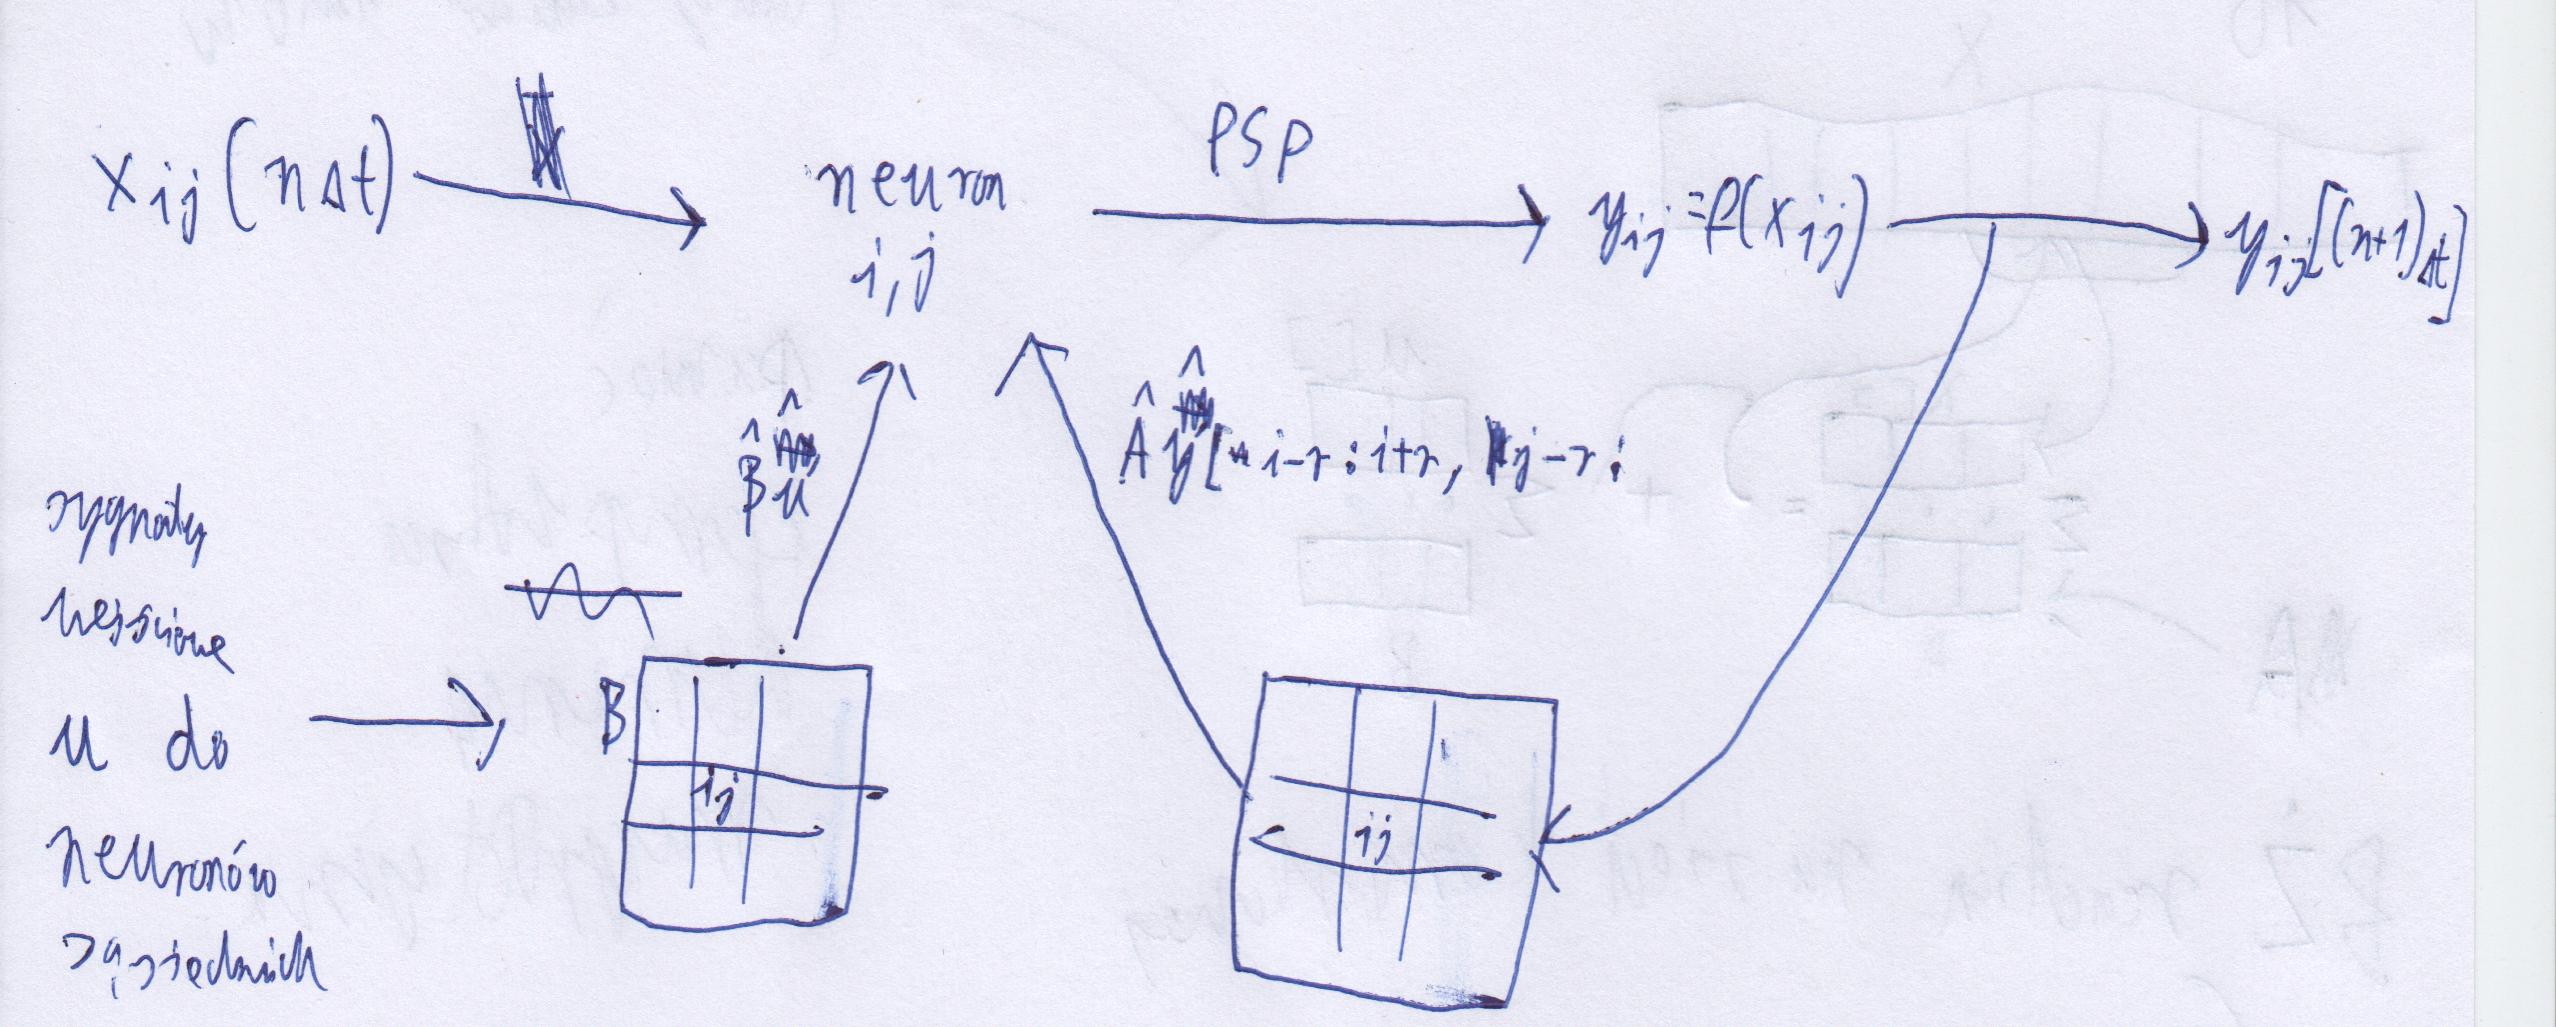 x_ij (nΔt)
neuron
i,j
PSP
y_ij = f(x_ij)
y_ij[(n+1)Δt]
B̂ û
Â ŷ[i-r:i+r, j-r:
sygnały
u do
neuronów
sąsiednich
B
ij
ij